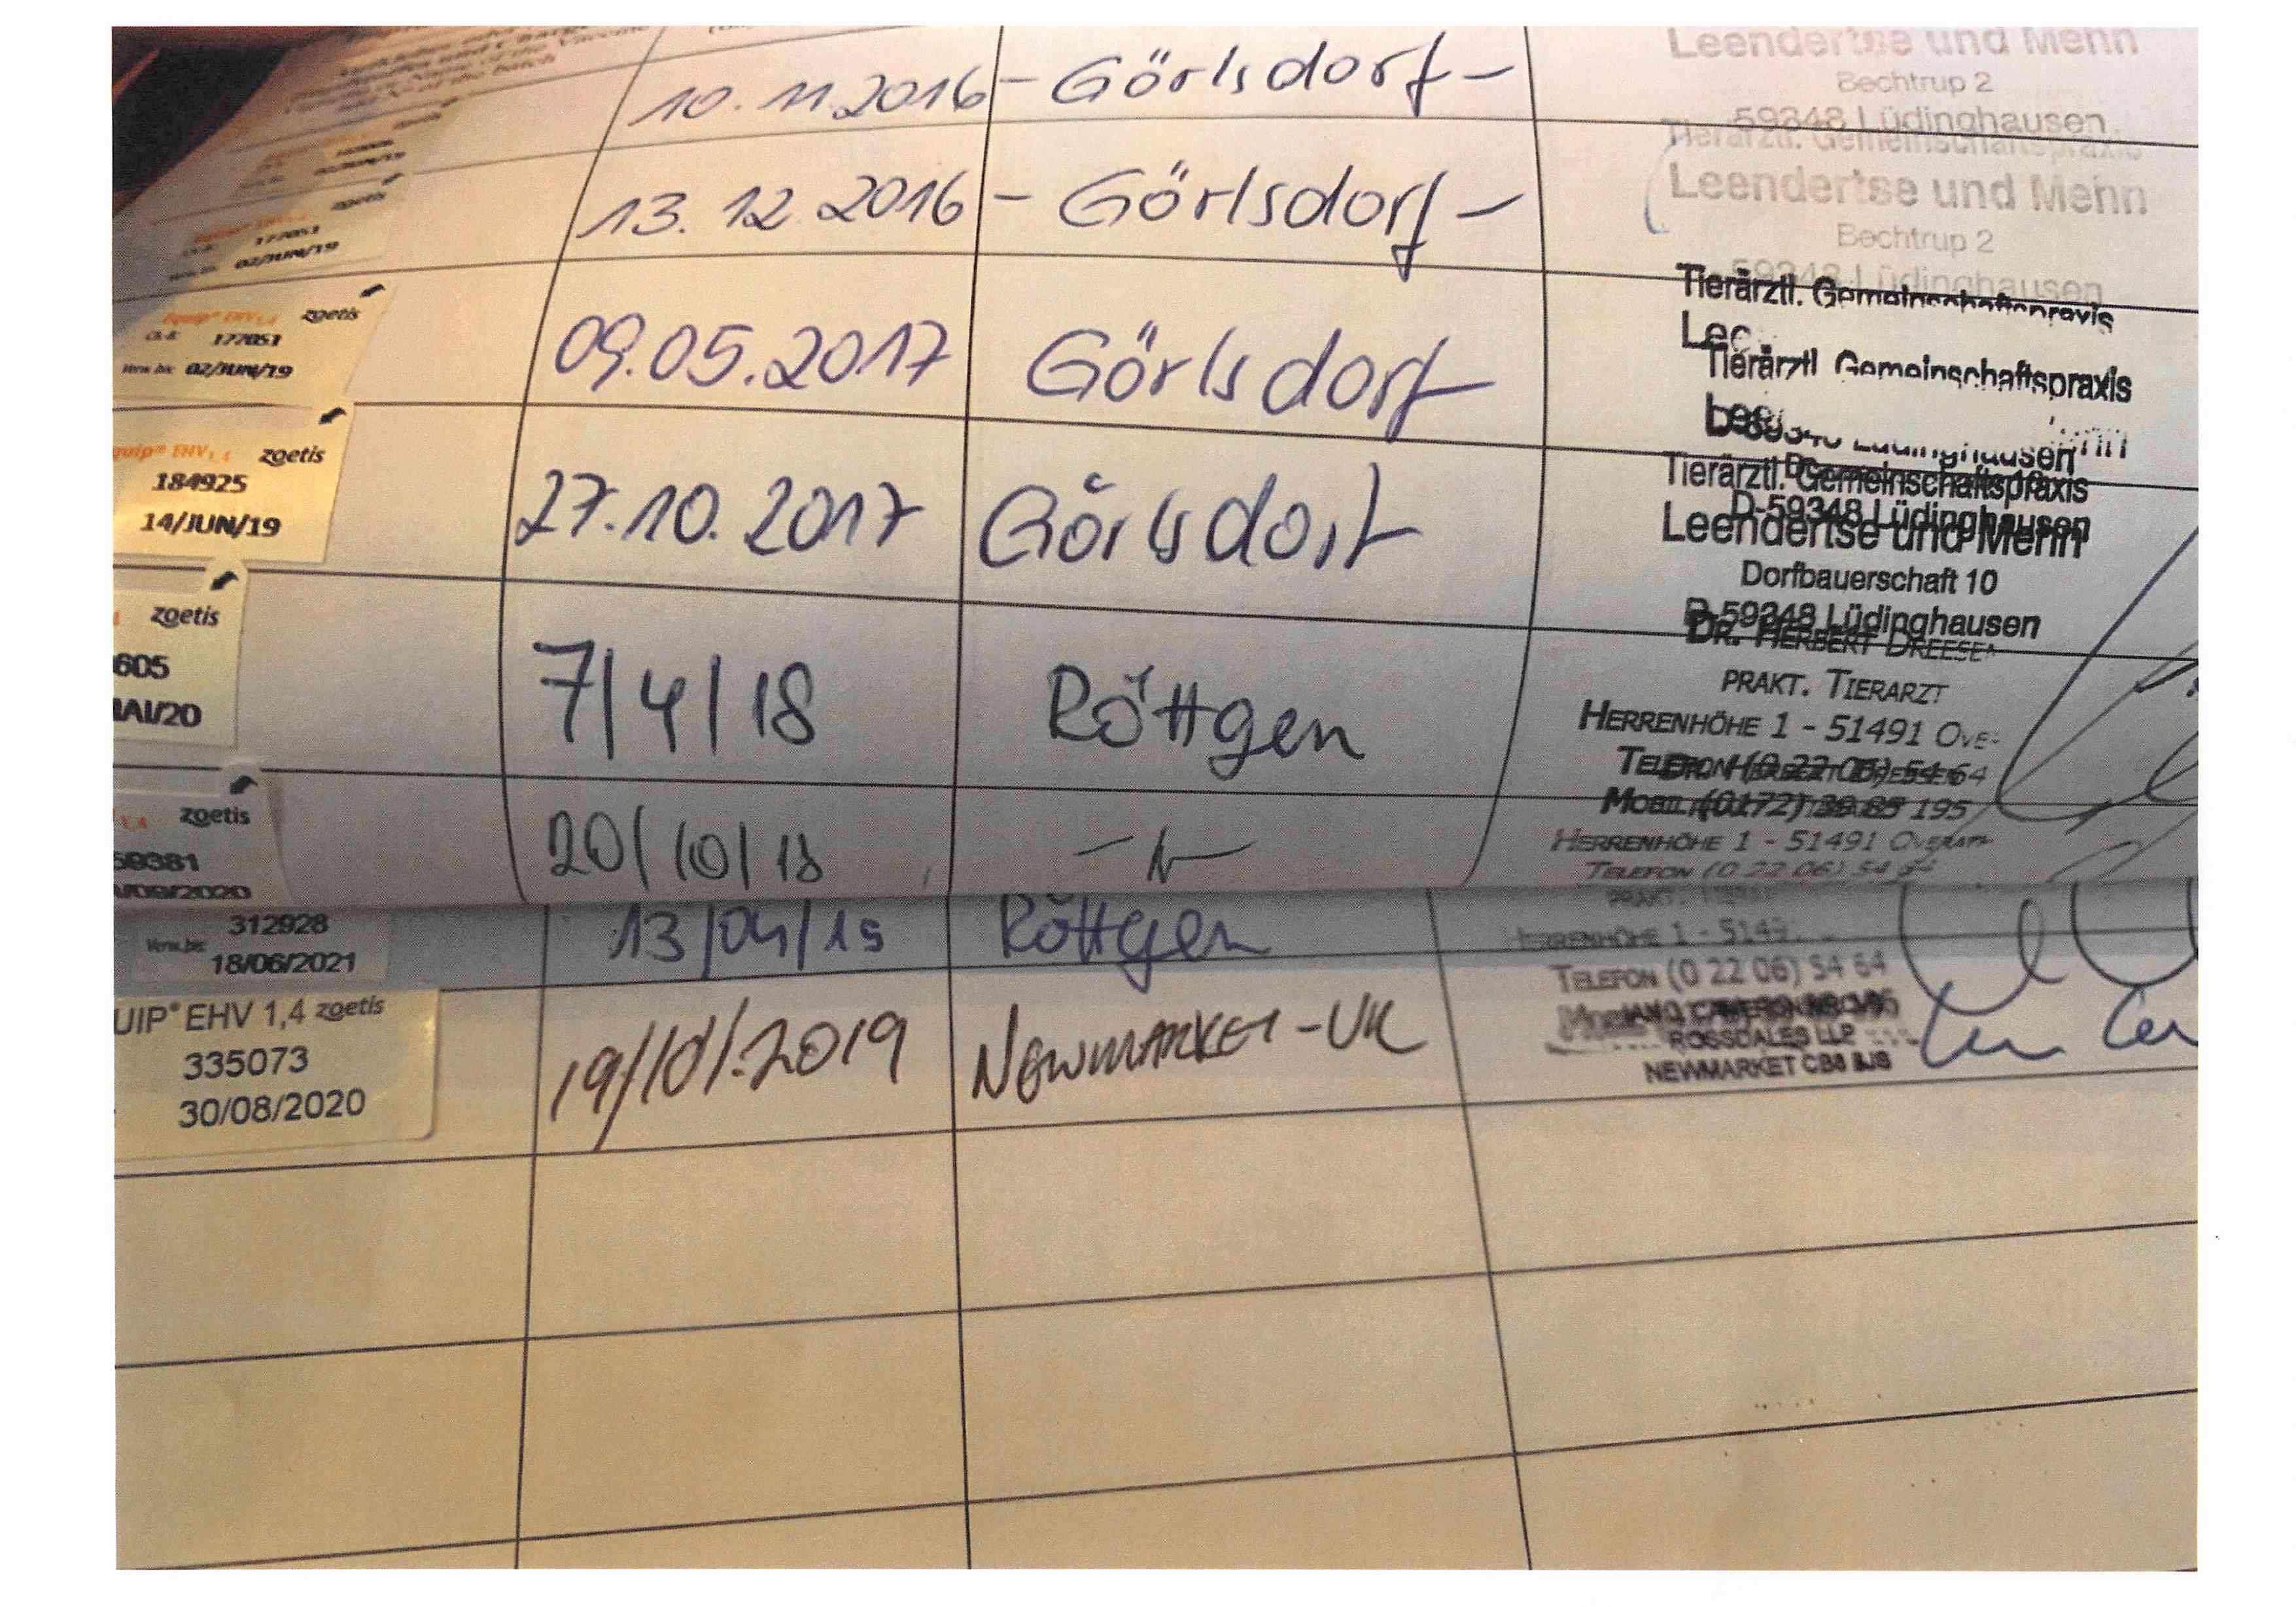 10.11.2016 - Görlsdorf -
Leendertse und Menn
Bechtrup 2
59348 Lüdinghausen
13.12.2016 - Görlsdorf -
177051
02/JUN/19
Tierärztl. Gemeinschaftspraxis
Leendertse und Menn
Bechtrup 2
59348 Lüdinghausen
Equip® EHV 1,4 zoetis
Ch.-B. 177051
Verw.bis: 02/JUN/19
09.05.2017 Görlsdorf
Tierärztl. Gemeinschaftspraxis
Tierärztl. Gemeinschaftspraxis
D-59348 Lüdinghausen
quip® EHV 1,4 zoetis
184925
14/JUN/19
27.10.2017 Görlsdorf
Tierärztl. Gemeinschaftspraxis
D-59348 Lüdinghausen
Leendertse und Menn
Dorfbauerschaft 10
D-59348 Lüdinghausen
zoetis
605
IAI/20
7/4/18 Röttgen
DR. HERBERT DREESEN
PRAKT. TIERARZT
HERRENHÖHE 1 - 51491 OVE
TELEFON (0 22 06) 54 64
1,4 zoetis
59381
/09/2020
20/10/18 -"-
HERRENHÖHE 1 - 51491
TELEFON (0 22 06) 54 64
312928
Verw.bis: 18/06/2021
13/04/19 Röttgen
HERRENHÖHE 1 - 5149
TELEFON (0 22 06) 54 64
UIP® EHV 1,4 zoetis
335073
30/08/2020
19/10/.2019 NEWMARKET-UK
ROSSDALES LLP
NEWMARKET CB8 8JS